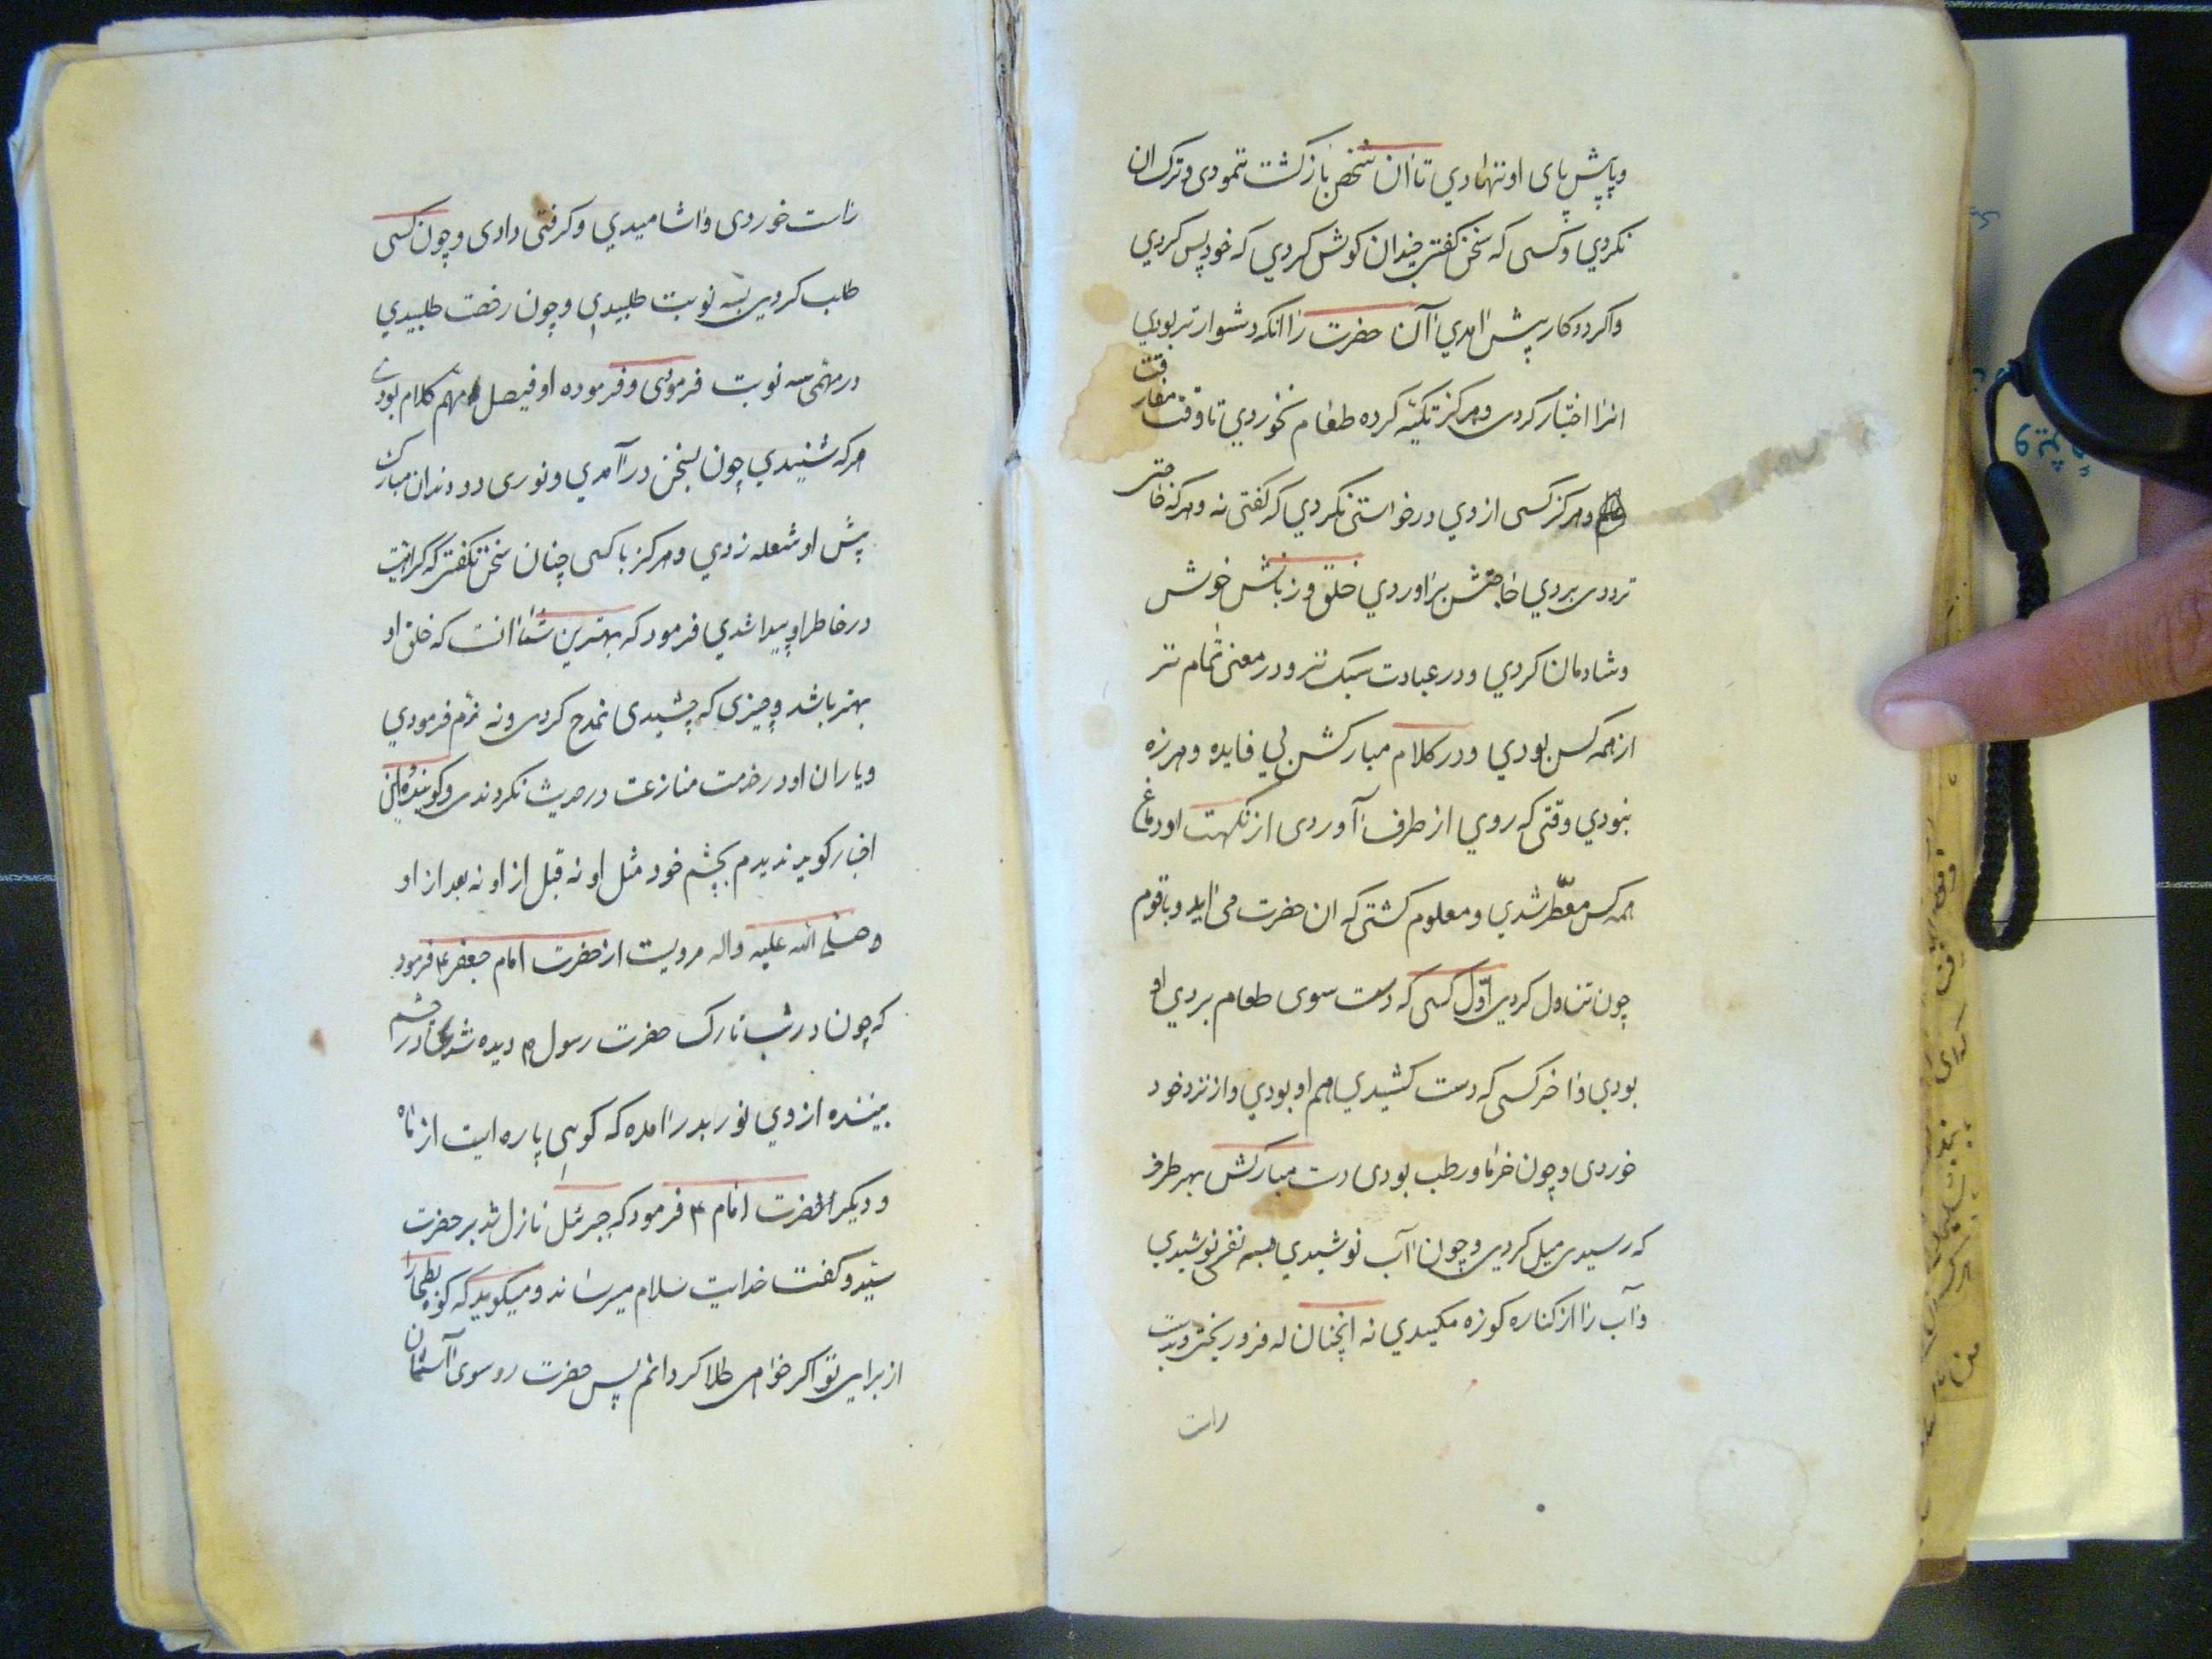 وپا پیش پای او ننهادي تا ان شخص بازکشت ننمودی وترک ان
نکردي وکسی که سخن کفتی چندان کوش کردي که خود پس کردي
واکر دو کار پیش امدي آن حضرت را انکه دشوارتر بودي
انرا اختیار کردی وهرکز تکیه کرده طعام نخوردي تا وقت مفارقت
وهرکز کسی ازوي درخواستی نکردي که کفتی نه وهرکه حاجتی
نزد وی بردي حاجتش براوردي خلق وزبانش خوش
وشادمان کردي ودر عبادت سبک تر ودر معنی تمام تر
از همه کس بودي ودر کلام مبارکش بي فایده وهرزه
نبودي وقتی که روي از طرف آوردی از نکهت او دماغ
همه کس معطّر شدي ومعلوم کشتی که ان حضرت می اید وبا قوم
چون تناول کردی اوّل کسی که دست سوی طعام بردي او
بودي واخر کسی که دست کشیدي هم او بودي واز نزد خود
خوردی وچون خرما ورطب بودی دست مبارکش بهر طرف
که رسیدی میل کردی وچون آب نوشیدي بسه نفس نوشیدي
وآب را از کناره کوزه مکیدي نه انچنان که فرو ریختی وبدست
راست
راست خوردی واشامیدي وکرفتی دادی وچون کسی
طلب کردی بسه نوبت طلبیدی وچون رخصت طلبیدي
در مهمی سه نوبت فرمودی وفرموده او فیصل مهم کلام بودی
هرکه شنیدي چون بسخن درآمدي ونوری در دندان مبارک
پیش او شعله زدي وهرکز با کسی چنان سخن نکفتی که کراهیت
در خاطر او پیدا شدي فرمود که بهترین شما انست که خلق او
بهتر باشد وچیزی که چشیدی نمدح کردی ونه ذم فرمودي
ویاران او در خدمت منازعت در حدیث نکردندی وکوینده این
اخبار کوید ندیدم بچشم خود مثل او نه قبل از او نه بعد از او
صلی الله علیه واله مرویست از حضرت امام جعفر ع فرمود
که چون در شب تارک حضرت رسول ص دیده شدی در چشم
بیننده از وي نور بدر امده که کویی پاره ایست از ماه
ودیکر از حضرت امام ع فرمود که جبرئل نازل شد بر حضرت
سید وکفت خدایت سلام میرساند ومیکوید که کوه بطحا را
از برای تو اکر خواهی طلا کردانم پس حضرت رو سوی آسمان